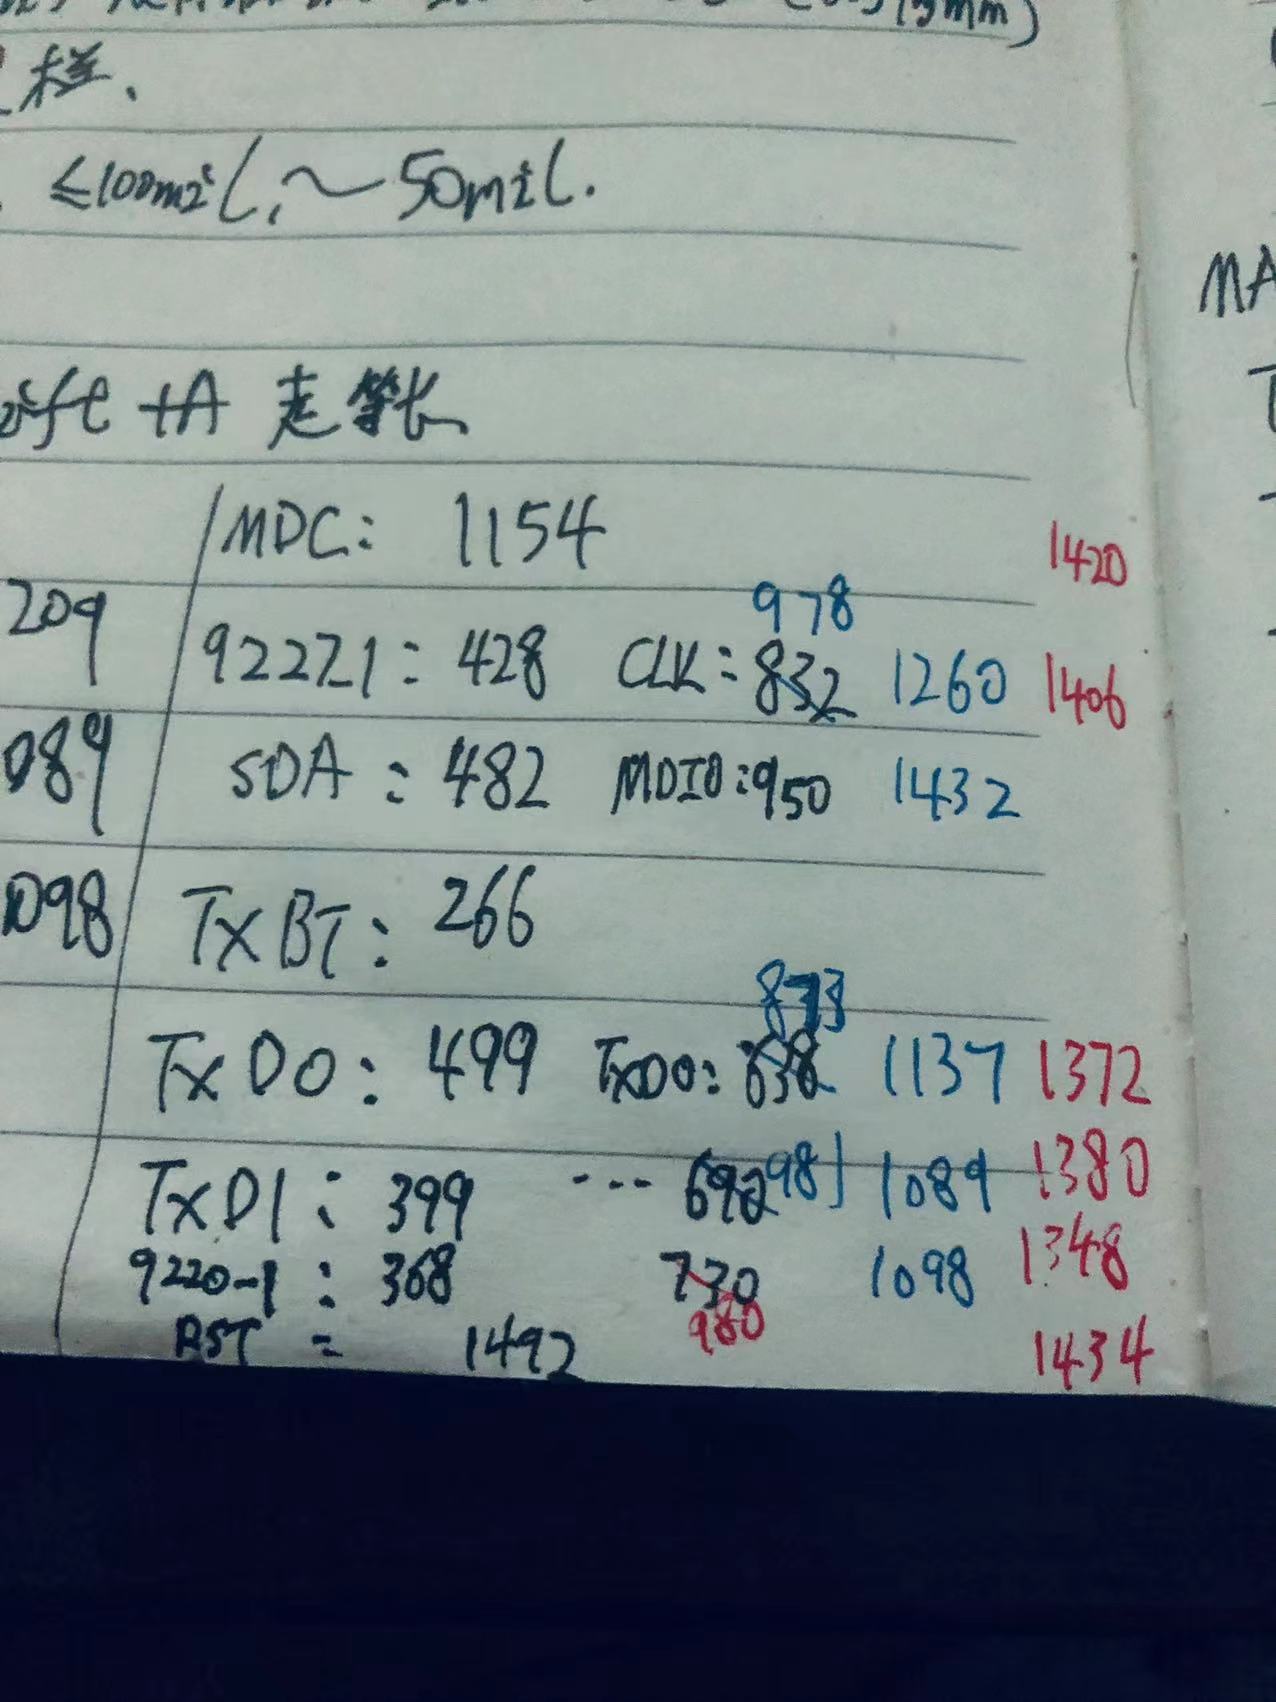 样、
≤100mil, ~50mil.
ift +A 走等长
MDC: 1154 1420
209 978
922Z1: 428 CLK: 832 1260 1406
089 SDA: 482 MDIO: 950 1432
098 TXBT: 266
873
TXD0: 499 TXD0: 638 1137 1372
TXD1: 399 ... 692 981 1089 1380
9220-1: 368 730 1098 1348
980
RST = 1492 1434
MA